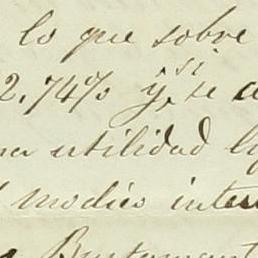 lo que sobre
2,74% y si se a
na utilidad l
modico inter
Bustamant